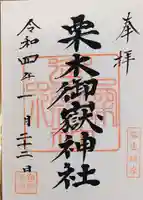 奉拝
栗木御嶽神社
令和四年一月二十二日